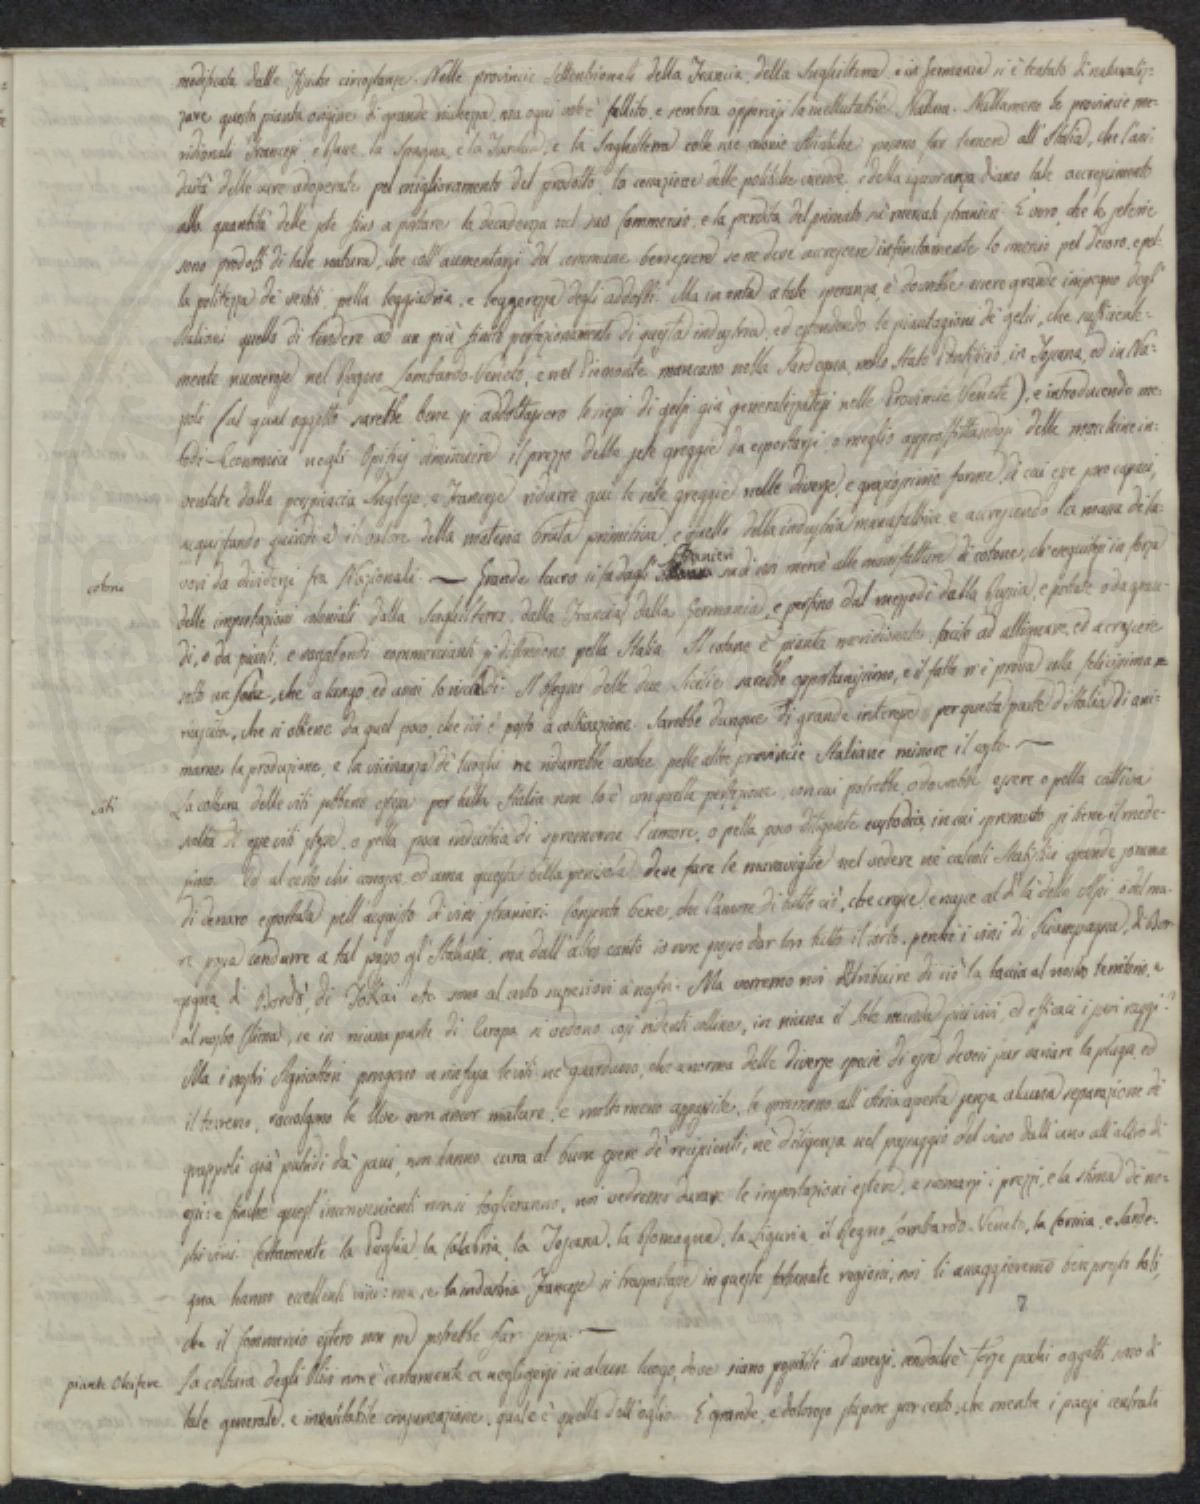 modificata dalle fisiche circostanze. Nelle provincie settentrionali della Francia, della Inghilterra, e in Germania si è tentato di naturaliz-
zare questa pianta origine di grande ricchezza, ma ogni volta è fallito, e sembra opporsi la Natura. Nullameno le provincie me-
ridionali Francesi, e la Spagna, e la Turchia, e la Inghilterra colle sue colonie Asiatiche possono far temere all'Italia, che l'assi-
duità delle cure adoperate pel miglioramento del prodotto, la cessazione delle politiche vicende, e della ignoranza diano tale accrescimento
alla quantità delle sete fino a portare la decadenza nel suo Commercio, e la perdita del primato su' mercati stranieri. È vero, che le seterie
sono prodotti di tale natura, che coll'aumentarsi del commune benessere se ne deve accrescere infinitamente lo smercio pel decoro, e pel-
la politezza de' vestiti, pella leggiadria, e leggerezza degli addobbi. Ma in onta a tale speranza, è dovrebbe essere grande impegno degl'
Italiani quello di tendere ad un più finito perfezionamento di questa industria, ed estendendo le piantagioni de' gelsi, che sufficiente-
mente numerose nel Regno Lombardo-Veneto, e nel Piemonte mancano nella Sardegna, nello Stato Pontificio, in Toscana, ed in Na-
poli (al qual oggetto sarebbe bene si addottassero le siepi di gelsi già generalizzatesi nelle Provincie Venete), e introducendo me-
todi Economici negli Opificj diminuire il prezzo delle sete greggie da esportarsi, o meglio approfittandosi delle macchine in-
ventate dalla perspicacia Inglese, e Francese ridurre qui le sete greggie nelle diverse, e graziosissime forme, di cui esse sono capaci,
acquistando quindi e il valore della materia bruta primitiva, e quello della industria manufattrice e accrescendo la massa de' la-
vori da dividersi fra Nazionali. — Grande lucro si fa dagli Stranieri su di noi mercè alle manifatture di cotone, ch'eseguitesi in forza
cotone
delle importazioni coloniali dalla Inghilterra, dalla Francia, dalla Germania, e perfino dal mezzodì della Russia, e portate o da gran-
di, o da piccoli, e vagabondi commercianti si diffondono pella Italia. Il cotone è pianta meridionale, facile ad allignare, ed a crescere
sotto un Sole, che a lungo, ed assai lo riscaldi. Il Regno delle due Sicilie sarebbe opportunissimo, e il fatto n'è prova colla felicissima
riuscita, che si ottiene da quel poco, che ivi è posto a coltivazione. Sarebbe dunque di grande interesse per questa parte d'Italia di ani-
marne la produzione, e la vicinanza de' luoghi ne ridurrebbe anche pelle altre provincie Italiane minore il costo. —
viti
La coltura delle viti sebbene estesa per tutta Italia non lo è con quella perfezione, con cui potrebbe, o dovrebbe essere o pella cattiva
scelta di esse viti stesse, o pella poca industria di spremerne l'umore, o pella poco diligente custodia, in cui spremuto si tiene il mede-
simo. Ed al certo chi conosce, ed ama questa bella penisola deve fare le maraviglie nel vedere ne' calcoli Statistici grande somma
di denaro esportata pell'acquisto di vini stranieri. Consento bene, che l'amore di tutto ciò, che cresce, e nasce al di là delle Alpi, o del ma-
re possa condurre a tal passo gl'Italiani, ma dall'altro canto io non posso dar loro tutto il torto, perchè i vini di Sciampagna, di Bor-
gogna, di Bordò, di Tokai etc. sono al certo superiori a' nostri. Ma vorremo noi attribuire di ciò la taccia al nostro territorio, e
al nostro Clima, se in niuna parte di Europa si vedono così ridenti colline, in niuna il Sole manda più vivi, ed efficaci i suoi raggi?
Ma i nostri Agricoltori pongono a rinfusa le viti nè guardano, che a norma delle diverse specie di esse devesi pur variare la plaga, ed
il terreno, raccolgono le Uve non ancor mature, e molto meno appassite, le spremono all'Aria aperta senza alcuna separazione de'
grappoli già putridi da' sani, non hanno cura al buon essere de' recipienti, nè diligenza nel passaggio del vino dall'uno all'altro di
essi: e finchè quest'inconvenienti non si toglieranno, noi vedremo durare le importazioni estere, e scemarsi i prezzi, e la stima de' no-
stri vini. Certamente la Puglia, la Calabria, la Toscana, la Romagna, la Liguria, il Regno Lombardo-Veneto, la Corsica, e Sarde-
gna hanno eccellenti vini: ma, se la industria Francese si trasportasse in queste fortunate regioni, noi li assaggieremo ben presto tali,
che il Commercio estero non ne potrebbe far senza. —
7
piante Oleifere
La coltura degli Ulivi non è certamente a negligersi in alcun luogo, dove siano possibili ad aversi, sendochè forse pochi oggetti sono di
tale generale, e inevitabile consumazione, quale è quella dell'oglio. È grande, e doloroso stupore per certo, che mentre i paesi centrali